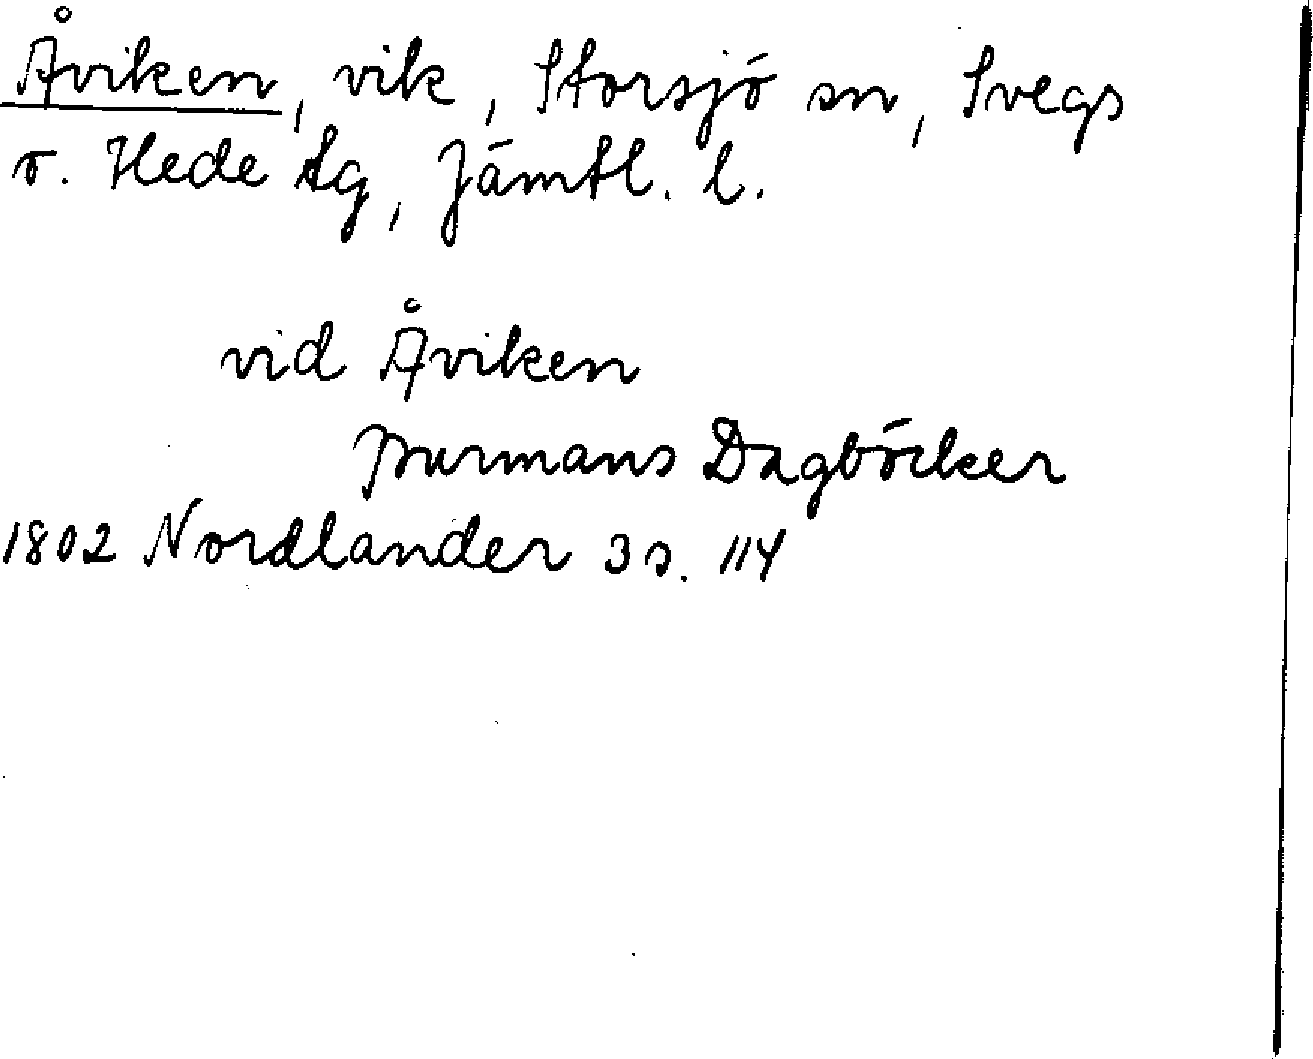 Åviken, vik, Storsjö sn, Svegs
o. Hede tg, Jämtl. l.
vid Åviken
Burmans Dagböcker
1802 Nordlander 3 s. 114